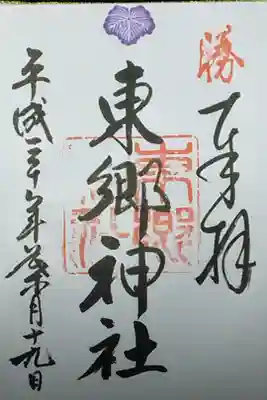 勝
奉拝
東郷神社
東郷神社
平成三十年月十九日